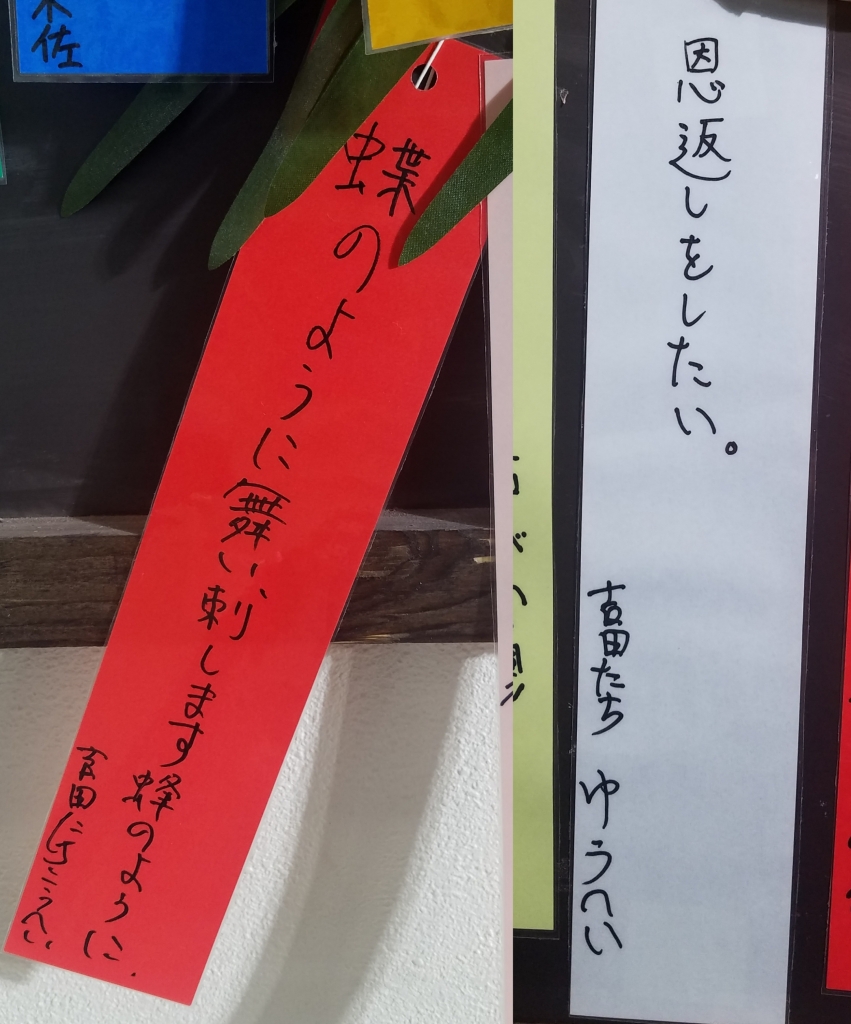 木佐
蝶のように舞い、刺します
蜂のように.
吉田たち こうへい
恩返しをしたい。
吉田たち ゆうへい